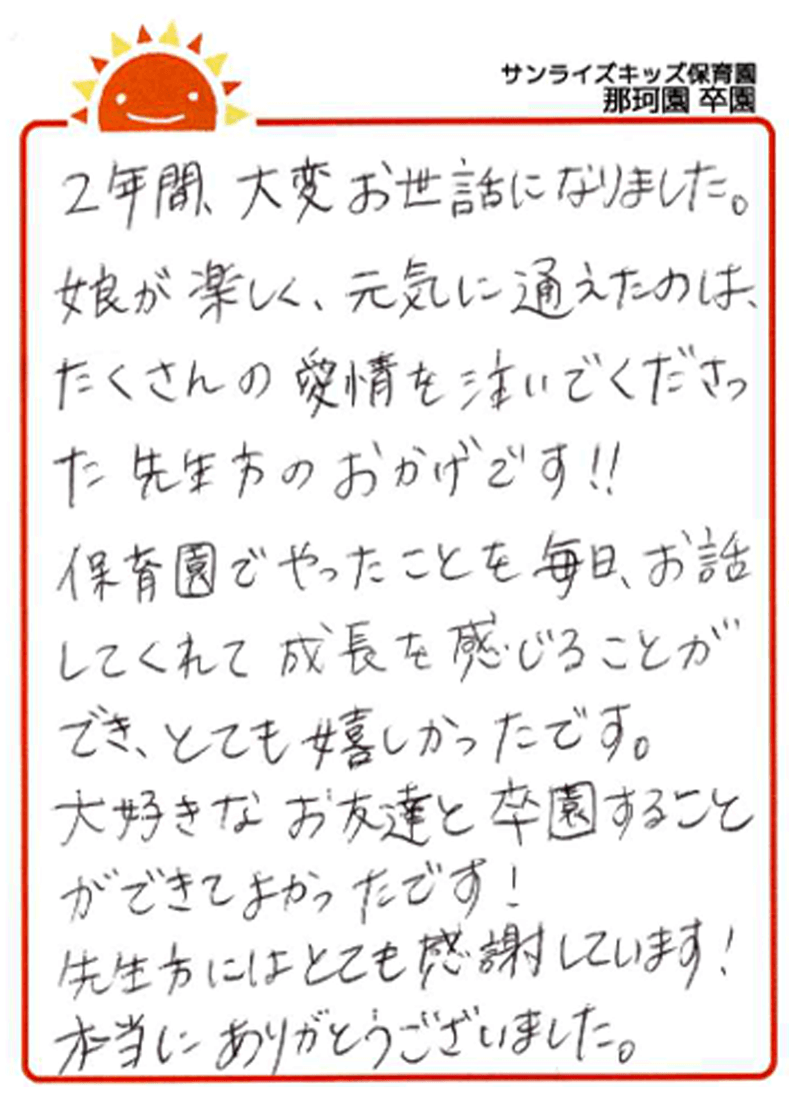 サンライズキッズ保育園
那珂園 卒園
2年間、大変お世話になりました。
娘が楽しく、元気に通えたのは、
たくさんの愛情を注いでくださっ
た先生方のおかげです!!
保育園でやったことを毎日、お話
してくれて成長を感じることが
でき、とても嬉しかったです。
大好きなお友達と卒園すること
ができてよかったです!
先生方にはとても感謝しています!
本当にありがとうございました。